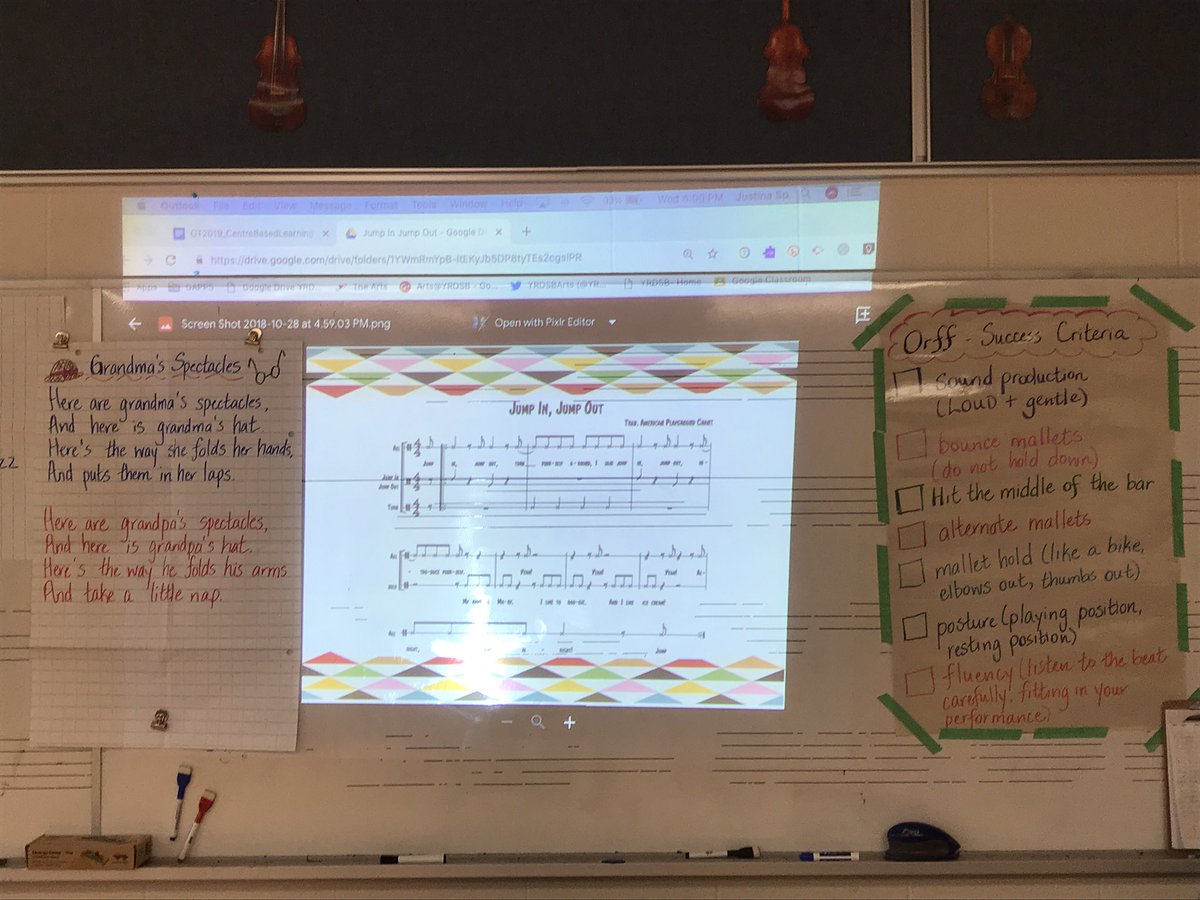 Outlook File Edit View Message Format Tools Window Help 93% Wed 6:00 PM Justina
GT2019_CentreBasedLearning
Jump In Jump Out - Google D
Apps GAPPS Google Drive YRD... The Arts Arts@YRDSB - Go... YRDSBArts (@YR... YRDSB- Home Google Classroom
Screen Shot 2018-10-28 at 4.59.03 PM.png
Open with Pixlr Editor
Grandma's Spectacles
Here are grandma's spectacles,
And here is grandma's hat.
Here's the way she folds her hands,
And puts them in her laps.
Here are grandpa's spectacles,
And here is grandpa's hat.
Here's the way he folds his arms
And take a little nap.
JUMP IN, JUMP OUT
TRAD. AMERICAN PLAYGROUND CHANT
ALL
JUMP IN, JUMP OUT, TURN
JUMP IN
JUMP OUT
TURN
YEAH! YEAH! YEAH!
I LIKE TO AND I LIKE ICE CREAM!
ALL
RIGHT, JUMP
Orff - Success Criteria
Sound production
(LOUD + gentle)
bounce mallets
(do not hold down)
Hit the middle of the bar
alternate mallets
mallet hold (like a bike,
elbows out, thumbs out)
posture (playing position,
resting position)
fluency (listen to the beat
carefully! fitting in your
performance)